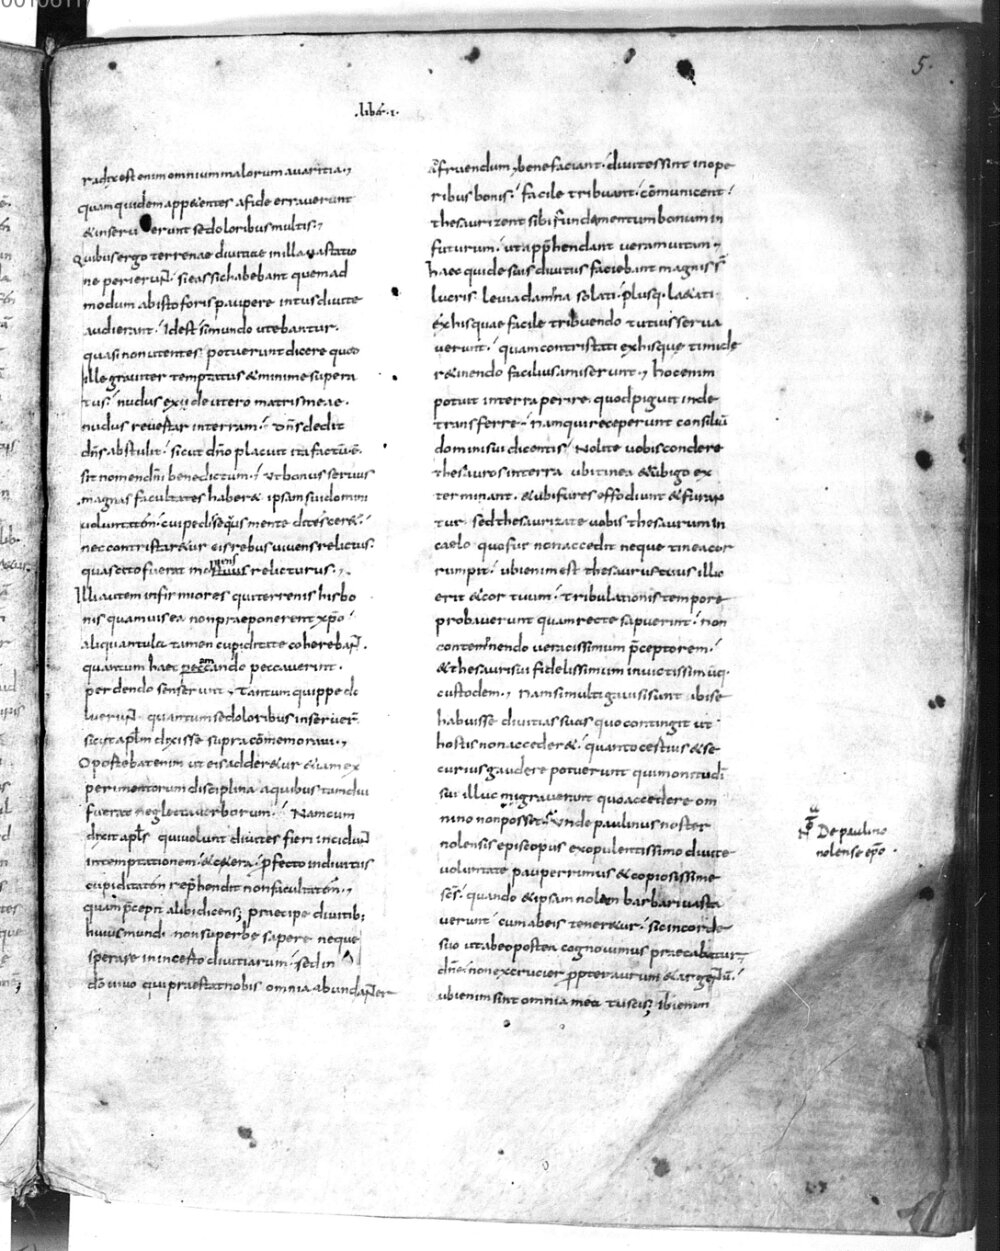 .liber.i.
5.
radix est enim omnium malorum auaritia.,
quam quidem appetentes a fide errauerunt
& inseruerunt se doloribus multis.,
Quibus ergo terrenae diuitiae in illa uastatio
ne perierunt. si eas sic habebant quemad
modum ab isto foris paupere intus diuite
audierant. Id est si mundo utebantur.
quasi non utentes potuerunt dicere quod
ille grauiter temptatus & minime supera
tus. nudus exii de utero matris meae.
nudus reuertar in terram. dn̄s dedit
dn̄s abstulit. sicut dn̄o placuit ita factū ē.
sit nomen dn̄i benedictum. Ut bonus seruus
magnas facultates haber& ipsam sui domini
uoluntatem. cui pedisequus mente ditescer&.
nec contristar&ur eis rebus uiuens relictus.
quas cito fuerat moriens relicturus.,
Illi autem infirmiores qui terrenis his bo
nis quamuis ea non praeponerent xp̄o
aliquantula tamen cupiditate coherebant.
quantum haec amando peccauerint.
perdendo senserunt. Tantum quippe do
luerunt. quantum se doloribus inseruer̄.
sicut apl̄m dixisse supra cōmemoraui.,
Oportebat enim ut eis adder&ur &iam ex
perimentorum disciplina a quibus tamdiu
fuerat neglecta uerborum. Nam cum
dixit apl̄s qui uolunt diuites fieri incidunt
in temptationem. & c&era. profecto in diuitiis
cupiditatem rep̄hendit non facultatem.,
quam p̄cepit alibi dicens; praecipe diuitib;
huius mundi non superbe sapere neque
sperare in incerto diuitiarum. sed in
dō uiuo qui praestat nobis omnia abundanter
ad fruendum. bene faciant. diuites sint in ope
ribus bonis. facile tribuant. cōmunicent.
thesaurizent sibi fundamentum bonum in
futurum. ut app̄hendant ueram uitam.,
haec qui de suis diuitiis faciebant magnis
lucris. leuia damna solati. plusq. laetati
ex his quae facile tribuendo tutius serua
uerunt. quam contristati ex his que timide
r&inendo facilius amiserunt., hoc enim
potuit in terra perire. quod piguit inde
transferre. Nam qui receperunt consiliū
domini sui dicentis. Nolite uobis condere
thesauros in terra ubi tinea & rubigo ex
terminant. & ubi fures effodiunt & furan
tur. sed thesaurizate uobis thesaurum in
caelo quo fur non accedit neque tinea cor
rumpit. ubi enim est thesaurus tuus illic
erit & cor tuum. tribulationis tempore
probauerunt quam recte sapuerint. non
contemnendo ueracissimum p̄ceptorem.
& thesauri sui fidelissimum inuictissimūq.
custodem., Nam si multi gauisi sunt ibi se
habuisse diuitias suas quo contingit ut
hostis non acceder&. quanto certius & se
curius gaudere potuerunt qui monitu dī
sui illuc migrauerunt quo accedere om
nino non posset. Unde paulinus noster
nolensis episcopus ex opulentissimo diuite
uoluntate pauperrimus & copiosissime
sc̄s. quando & ipsam nolam barbari uasta
uerunt. cum ab eis tener&ur. sic in corde
suo ut ab eo postea cognouimus praecabatur,
dn̄e non excrucier ppter aurum & argentū.
ubi enim sint omnia mea tu scis; ibi enim
De paulino
nolense ep̄o.